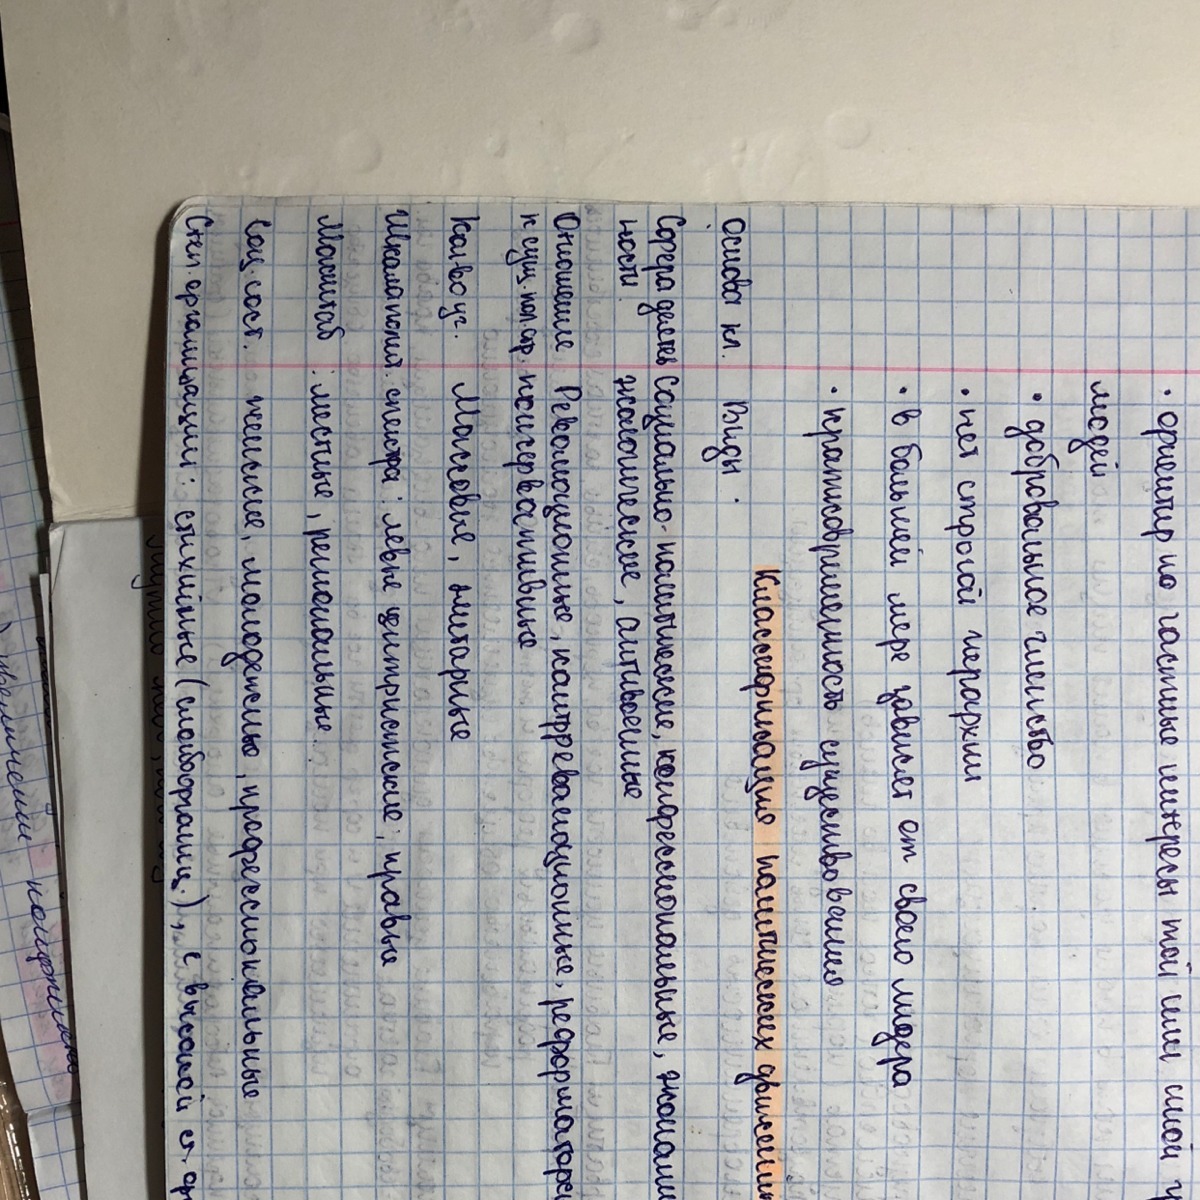 • ориентир на частные интересы той или иной г
людей
• добровольное членство
• нет строгой иерархии
• в большей мере зависят от своего лидера
• кратковременность существования
Классификация политических движений
Основа кл. Виды.
Сфера деятель Социально-политические, конфессиональные, экономи
ности. экологические, антивоенные
Отношение Революционные, контрреволюционные, реформаторски
к сущ. пол. стр. консервативные
Кол-во уч. Массовые, элитарные
Шкала полит. спектра: левые центристские, правые
Масштаб: местные, региональные
Соц. сост. женские, молодежные, профессиональные
Степ. организации: стихийные (слабоорганиз.), с высокой ст. ор